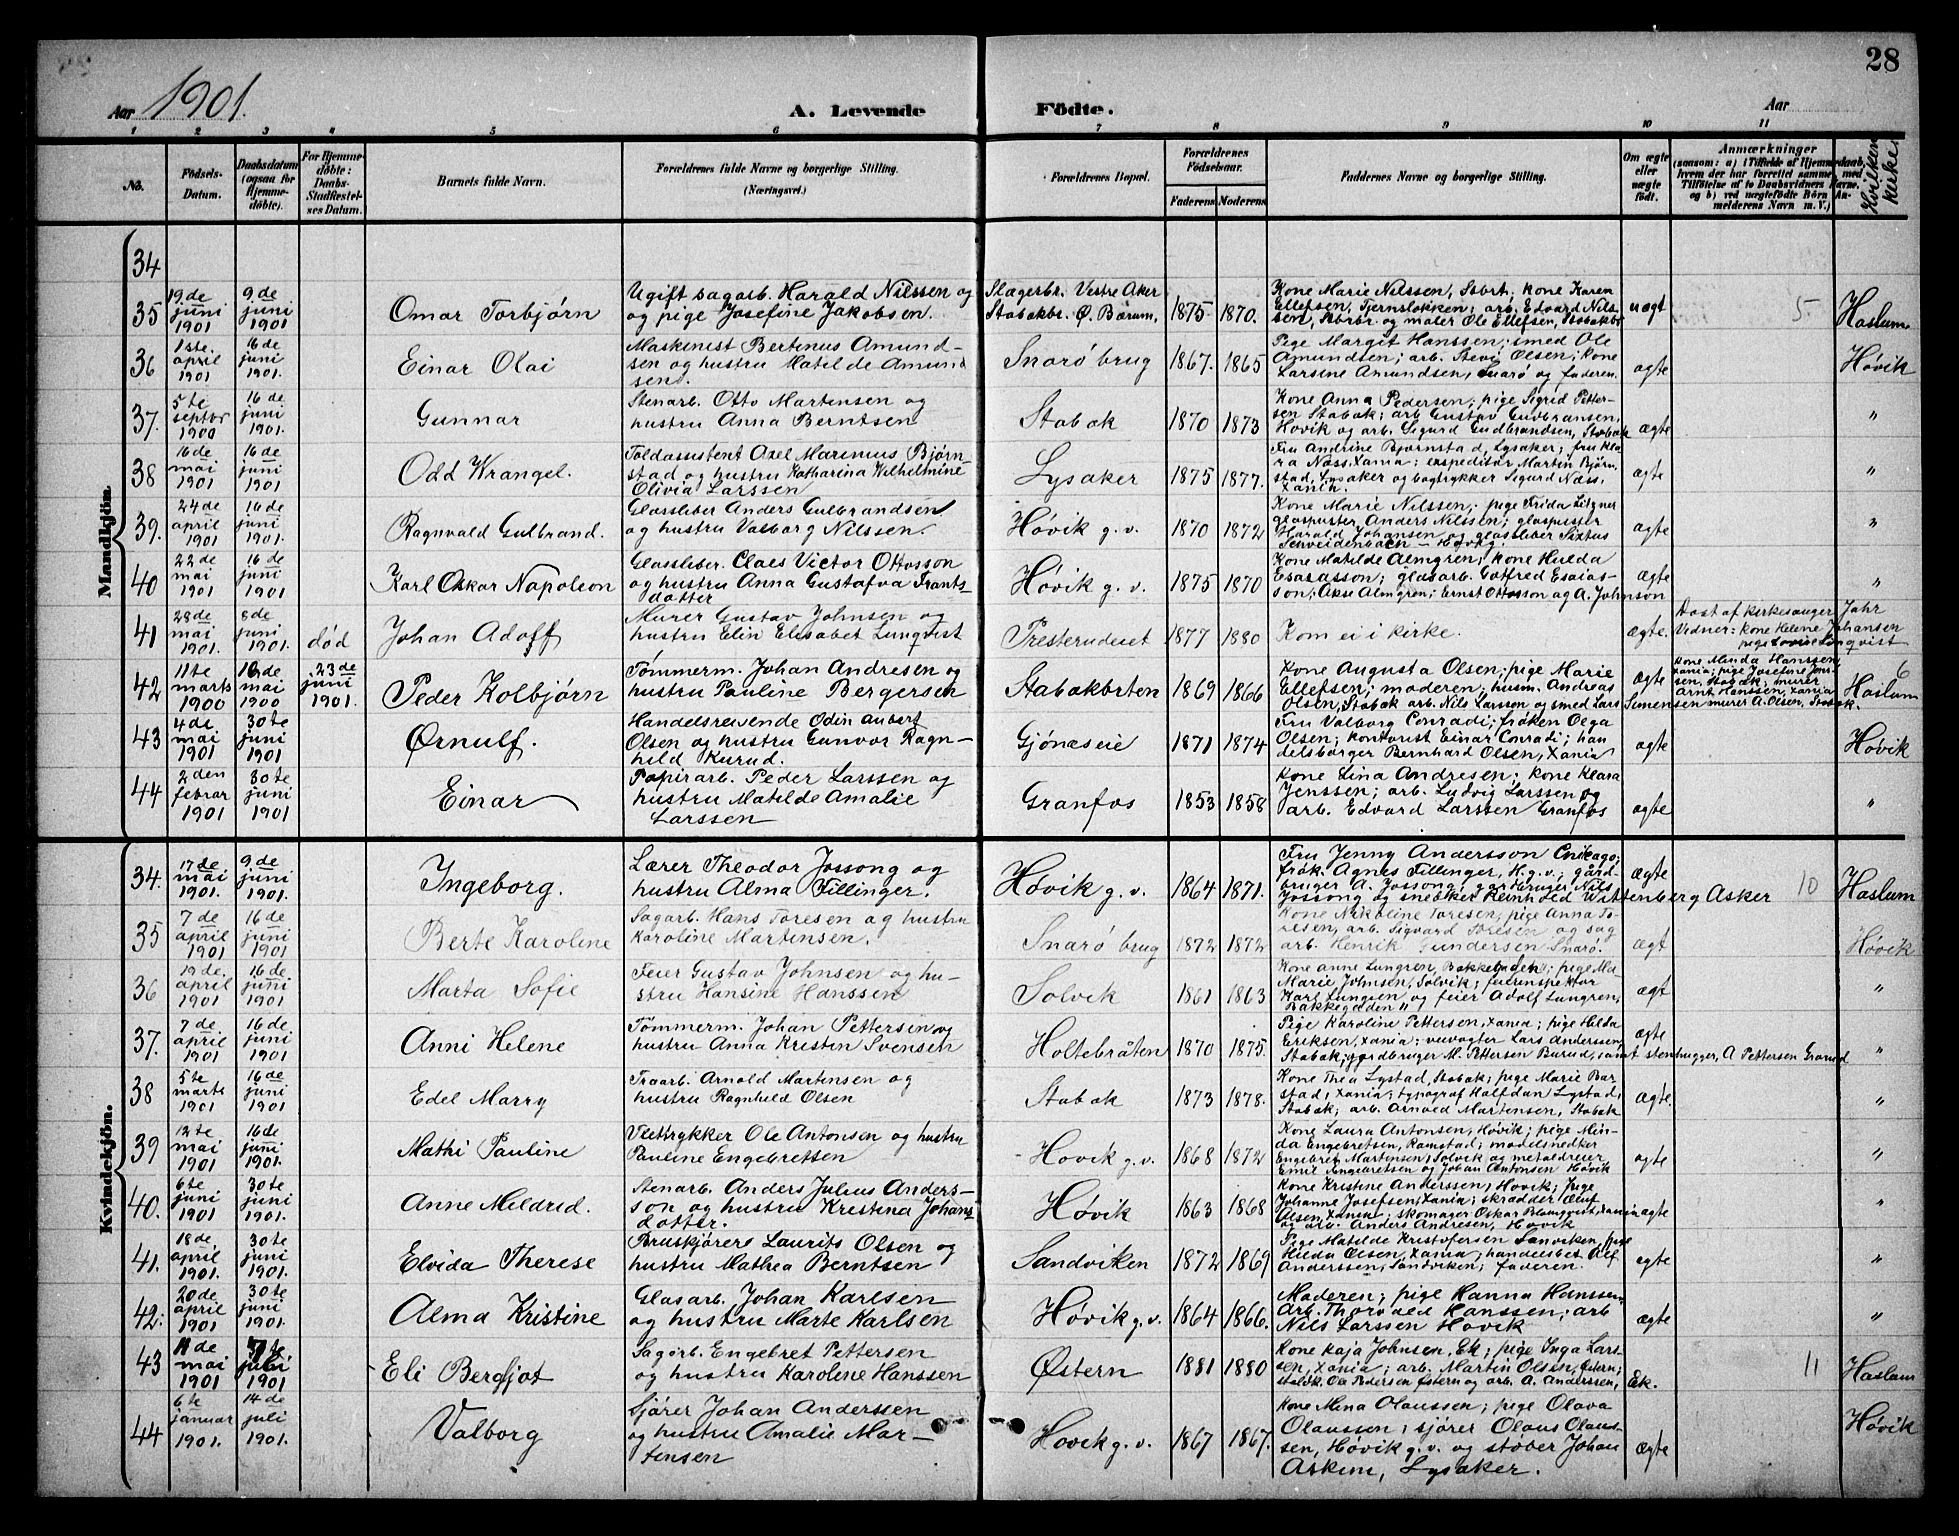 28
Aar 1901.
A. Levende Födte.
Aar
1 2 3 4 5 6 7 8 9 10 11
No.
Födsels-Datum.
Daabsdatum (ogsaa for Hjemme-döbte).
For Hjemme-döbte: Daabs-Stadfæstel-ses Datum.
Barnets fulde Navn.
Forældrenes fulde Navne og borgerlige Stilling.
(Næringsvei.)
Forældrenes Bopæl.
Forældrenes Födselsaar.
Faderens Moderens
Faddernes Navne og borgerlige Stilling.
Om ægte eller uægte födt.
Anmærkninger
Hvilken kirke.
Mandkjön.
34
35 19de juni 1901 9de juni 1901 Omar Torbjørn Ugift sagarb. Harald Nilssen og
og pige Josefine Jakobsen. Slagerbr. Vestre Aker Stabakbr. Ø. Bærum. 1875 1870. Kone Marie Nilssen, Stbrt; kone Karen
Ellefsen, Tjernslokken; arb. Edvard Nils-
sen, Stbrbr. og maler Ole Ellefsen, Stabakbr uægt 5. Haslum
36 1ste april 1901 16de juni 1901. Einar Olai Maskinist Bertinus Amund-
sen og hustru Matilde Amund
sen. Snarø brug 1867. 1865 Pige Margit Hanssen; smed Ole
Amundsen; arb. Olsen; kone
Larsine Amundsen, Snarø og faderen. ægte Høvik
37. 5te septbr 1900 16de juni 1901. Gunnar Stenarb. Otto Martensen og
hustru Anna Berntsen Stabak 1870 1873 Kone Anna Pedersen; pige Sigrid Petter-
sen Stabak; arb Gustav Gudbransen,
Høvik og arb. Sigurd Gudbrandsen, Stabak ægte "
38 16de mai 1901 16de juni 1901 Odd Wrangel. Toldassistent Axel Marinius Bjørn-
stad og hustru Katharina Wilhelmine
Olivia Larssen Lysaker 1875 1877. Fru Andrine Bjørnstad, Lysaker; fru Kla
ra Næss, Xania; expeditør Martin Bjørn
stad, Lysaker og bogtrykker Sigurd Næss,
Xania. ægte "
39. 24de april 1901 16de juni 1901. Ragnvald Gulbrand. Glassliber Anders Gulbrandsen
og hustru Valborg Nilssen. Høvik g. v. 1870 1872 Kone Marie Nilssen; pige Frida
glaspuster Anders Nilssen; glaspuster
Harald Johansen og glassliber Sixtus
Schweidenbach – Høvkg. ægte "
40 22de mai 1901 16de juni 1901. Karl Oskar Napoleon Glassliber. Claes Victor Ottosson
og hustru Anna Gustafva Frants-
dotter Høvik g. v. 1875 1870 Kone Matilde Almgren; kone Hulda
Esaiasson; glasarb. Gotfred Esaias-
son; Almgren; Ernst Ottosson og A. Johnson ægte "
41 28de mai 1901. 8de juni 1901. død Johan Adoff Murer Gustav Johnsen og
hustru Elin Elisabet Lunqvist Presterudeset 1877 1880 Kom ei i kirke. ægte. Døbt af kirkesanger Jahr
Vidner: kone Helene Johansen
pige Lovise Linqvist
42 11te marts 1900 16de mai 1900 23de juni 1901. Peder Kolbjørn Tømmerm. Johan Andresen og
hustru Pauline Bergersen Stabakbrten 1869 1866 Kone Augusta Olsen; pige Marie
Ellefsen; moderen; husm. Andreas
Olsen, Stabak arb. Nils Larssen og smed Lars Simensen ægte Kone Minda Hanssen,
Xania; pige Josefine Jons
sen, Stabak; murer
Arnt Hanssen, Xania
murer A. Olsen, Stabak. 6 Haslum
43 4de mai 1901 30te juni 1901 Ørnulf. Handelsreisende Odin Aubert
Olsen og hustru Gunvor Ragn-
hild Rurud. Gjønæseie 1871 1874 Fru Valborg Conradi; frøken Olga
Olsen; kontorist Einar Conradi; han
delsborger Bernhard Olsen, Xania ægte Høvik
44 2den febrar 1901 30te juni 1901 Einar Papirarb. Peder Larssen og
hustru Matilde Amalie
Larssen Granfos 1853 1858 Kone Lina Andresen; kone Klara
Jenssen; arb. Ludvig Larssen og
arb. Edvard Larssen Granfos ægte "
Kvindekjön.
34. 17de mai 1901. 9de juni 1901. Ingeborg. Lærer Theodor Jossong og
hustru Alma Fillinger. Høvik g. v. 1864 1871. Fru Jenny Andersson Chicago;
frøk. Agnes Fillinger, H.g.v.; gård-
bruger A. Jossong; gardbruger Nils
Jossong og snedker Reinhold Wittenberg Asker ægte 10 Haslum
35 7de april 1901 16de juni 1901 Berte Karoline Sagarb. Hans Toresen og hustru
Karoline Martinsen. Snarø brug 1872 1872 Kone Nikoline Toresen; pige Anna To-
resen, arb. Sigvard Toresen og sag
arb. Henrik Gundersen Snarø. ægt Høvik
36 19de april 1901 16de juni 1901. Marta Sofie Feier Gustav Johnsen og hu-
stru Hansine Hanssen Solvik 1861 1863 Kone Anne Lungren, Bakkegaden; pige Ma
Marie Johnsen, Solvik; feierinspektør
Karl Lungren og feier Adolf Lungren,
Bakkegaden " ægt "
37. 7de april 1901 16de juni 1901 Anni Helene Tømmerm. Johan Pettersen og
hustru Anna Kristin Svensen Holtebråten 1870 1875. Pige Karoline Pettersen, Xania; pige Hilda
Eriksen, Xania; veivogter Lars Anderssen,
Stabak; gardbruger M. Pettersen Burud, samt stenhugger, A Pettersen ægte "
38 5te marts 1901 16de juni 1901 Edel Marry Traarb. Arnold Martensen og
hustru Ragnhild Olsen Stabak 1873 1878. Kone Thea Lystad, Stabak; pige Marie Bar
stad, Xania; typograf Halfdan Lystad,
Stabak; arb. Arnold Martensen, Stabak ægte. "
39 12te mai 1901 16de juni 1901. Mathi Pauline Valttrykker Ole Antonsen og hustru
Pauline Engebretsen Høvik g. v. 1868 1872 Kone Laura Antonsen, Høvik; pige Min-
da Engebretsen, Ramstad; modelsnedker
Engebret Martensen, Solvik og metaldreier
Emil Engebretsen og Johan Antonsen Høvik ægte "
40. 6te juni 1901 30te juni 1901. Anne Mildrid. Stenarb. Anders Julius Anders-
son og hustru Kristina Johans
dotter. Høvik 1863 1868 Kone Kristine Anderssen, Høvik; pige
Johanne Josefsen, Xania; skrædder Oluf
Olsen, Xania; skomager Oskar Blomqvist, Xania
og arb. Anders Andresen, Høvik ægte "
41. 18de april 1901. 30te juni 1901. Elvida Therese Bruskjørere Laurits Olsen og
hustru Mathea Berntsen Sandviken 1872 1869 Pige Matilde Kristofersen Sanviken, pige
Hilda Olsen, Xania; handelsbet. Alf
Anderssen, Sandviken; faderen. ægte "
42. 20de april 1901 30te juni 1901. Alma Kristine Glasarb. Johan Karlsen
og hustru Marte Karlsen Høvik g. v. 1864 1866. Moderen; pige Hanna Hanssen
arb. Thorvald Hanssen; arb
Nils Larssen Høvik ægte "
43 11de mai 1901 7de juli 1901 Eli Bergljot Sagarb. Engebret Pettersen
og hustru Karoline Hanssen Østern 1881 1880 Kone Kaja Johnsen, Ek; pige Inga Lars-
sen, Xania; arb. Martin Olsen, Østern;
Ole Pedersen Østern og arb. A. Anderssen, Ek. 11 Haslum
44 6te januar 1901. 14de juli 1901. Valborg Sjører Johan Anderssen
og hustru Amalie Mar-
tensen Høvik g. v. 1867 1867. Kone Mina Olaussen; pige Olava
Olaussen; sjører Olaus Olaus-
sen, Høvik g. v. og støber Johan
Askim, Lysaker. ægte Høvik